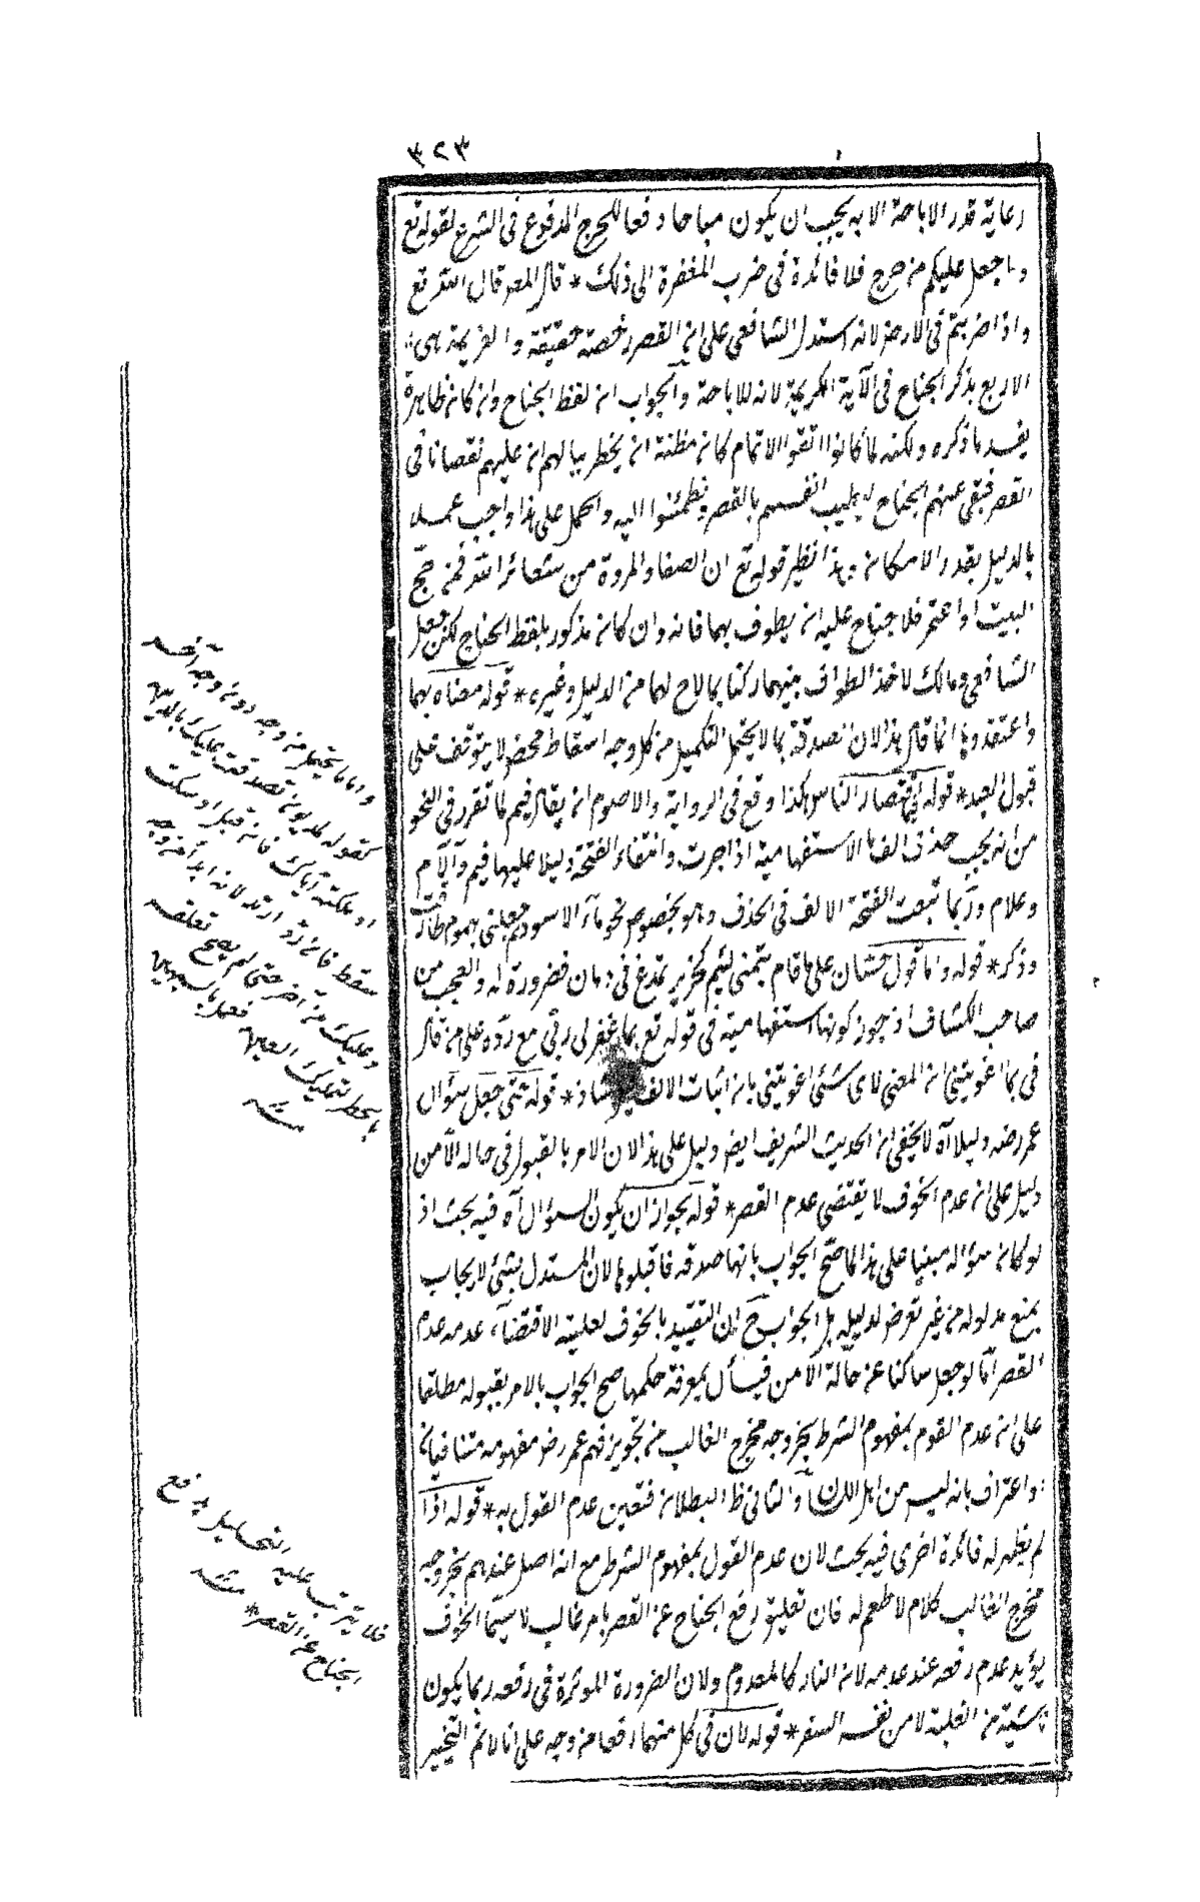 ٣٢٣
رعاية قدر الاباحة الا به يجب ان يكون مباحا دفعا للحرج المدفوع فى الشرع لقوله تع
وما جعل عليكم من حرج فلا فائدة فى ضرب المغفرة الى ذلك * قال المصر قال الله تع
واذا ضربتم فى الارض لانه استدل الشافعى على ان القصر رخصة حقيقة والعزيمة هى
الاربع بذكر الجناح فى الآية الكريمة لانه للاباحة والجواب ان لفظ الجناح وان كان ظاهرة
يفيد ما ذكره ولكنه لما كانوا اتقوا الاتمام كان مظنة ان يخطر ببالهم ان عليهم نقصانا فى
القصر فنفى عنهم الجناح ليطيب انفسهم بالقصر وتطمئنوا اليه والحمل على هذا واجب عملا
بالدليل بقدر الامكان وهذا نظير قوله تع ان الصفا والمروة من شعائر الله فمن حج
البيت او اعتمر فلا جناح عليه ان يطوف بهما فانه وان كان مذكور بلفظ الجناح لكن جعل
الشافعى ومالك لاخذ الطواف بينهما ركنا بما لاح لهما من الدليل وغيره * قوله معناه بهما
واعتقدوها انما قال هذا لان الصدقة بما لا يحتمل التكميل من كل وجه اسقاط محض لا يتوقف على
قبول العبد * قوله الناس هكذا وقع فى الرواية والاصوم ان يقال فيم لما تقرر فى النحو
من انه يجب حذف الف ما الاستفهامية اذا جرت وانتفاء الفتحة دليلا عليها فيم والام
وعلام وربما تبعت الفتحة الالف فى الحذف وهو مخصوص نحو ماء الاسود لم جعلنى بهموم طارقت
وذكر * قوله واما قول حسان على ما قام يشتمنى لئيم كخنزير تمرغ فى دمان فضرورة له والعجب من
صاحب الكشاف اذ جوز كونها استفهامية فى قوله تع بما غفر لى ربى مع رده على من قال
فى بما اغويتنى ان المعنى لاى شئ اغويتنى بان اثبات الالف شاذ * قوله حتى جعل سؤال
عمر رضه دليلا آه لا يخفى ان الحديث الشريف ايض دليل على هذا لان الامر بالقبول فى حاله الأمن
دليل على ان عدم الخوف لا يقتضى عدم القصر * قوله بجواز ان يكون السؤال آه فيه بحث اذ
لو كان سؤاله مبنيا على هذا لما صح الجواب بانها صدقه فاقبلوها لان المستدل بشئ لا يجاب
بمنع مدلوله من غير تعرض لدليله بل الجواب ح ان التقييد بالخوف لعلية الاقتضاء عدمه عدم
القصر اما لو جعل ساكنا عن حالة الأمن فيسأل بمعرفة حكمها صح الجواب بالامر بقبوله مطلقا
على ان عدم القوم بمفهوم الشرط بخروجه مخرج الغالب من تجويز فهم عمر رض مفهومه متنافيان
واعتراف بانه ليس من اهل اللسان والثانى ظ البطلان فتعين عدم القول به * قوله اذا
لم يظهر له فائدة اخرى فيه بحث لان عدم القول بمفهوم الشرط مع انه اصل عندهم بخروجه
مخرج الغالب كلام لا طعم له فان تعليق رفع الجناح عن القصر بامر غالب لا سيما الخوف
يؤيد عدم رفعه عند عدمه لان النادر كالمعدوم ولان الضرورة الموثرة فى رفعه ربما يكون
من الغلبة لا من نفس السفر * قوله لان فى كل منهما رفعا من وجه على انا لا نم التخيير
واما ما يحتمله من وجه دون وجه آخر
كقوله لمديونه تصدقت عليك بالدين
او ملكته اياك فان قبل او سكت
سقط فان رد ارتد لانه ابرأ من وجه
وتمليك من آخر حتى لم يصح تعلقه
بالخطر كتمليك العين فعمل بالشبهين
منه
فلا يترتب عليه انتصابه به رفع
الجناح عن القصر * منه